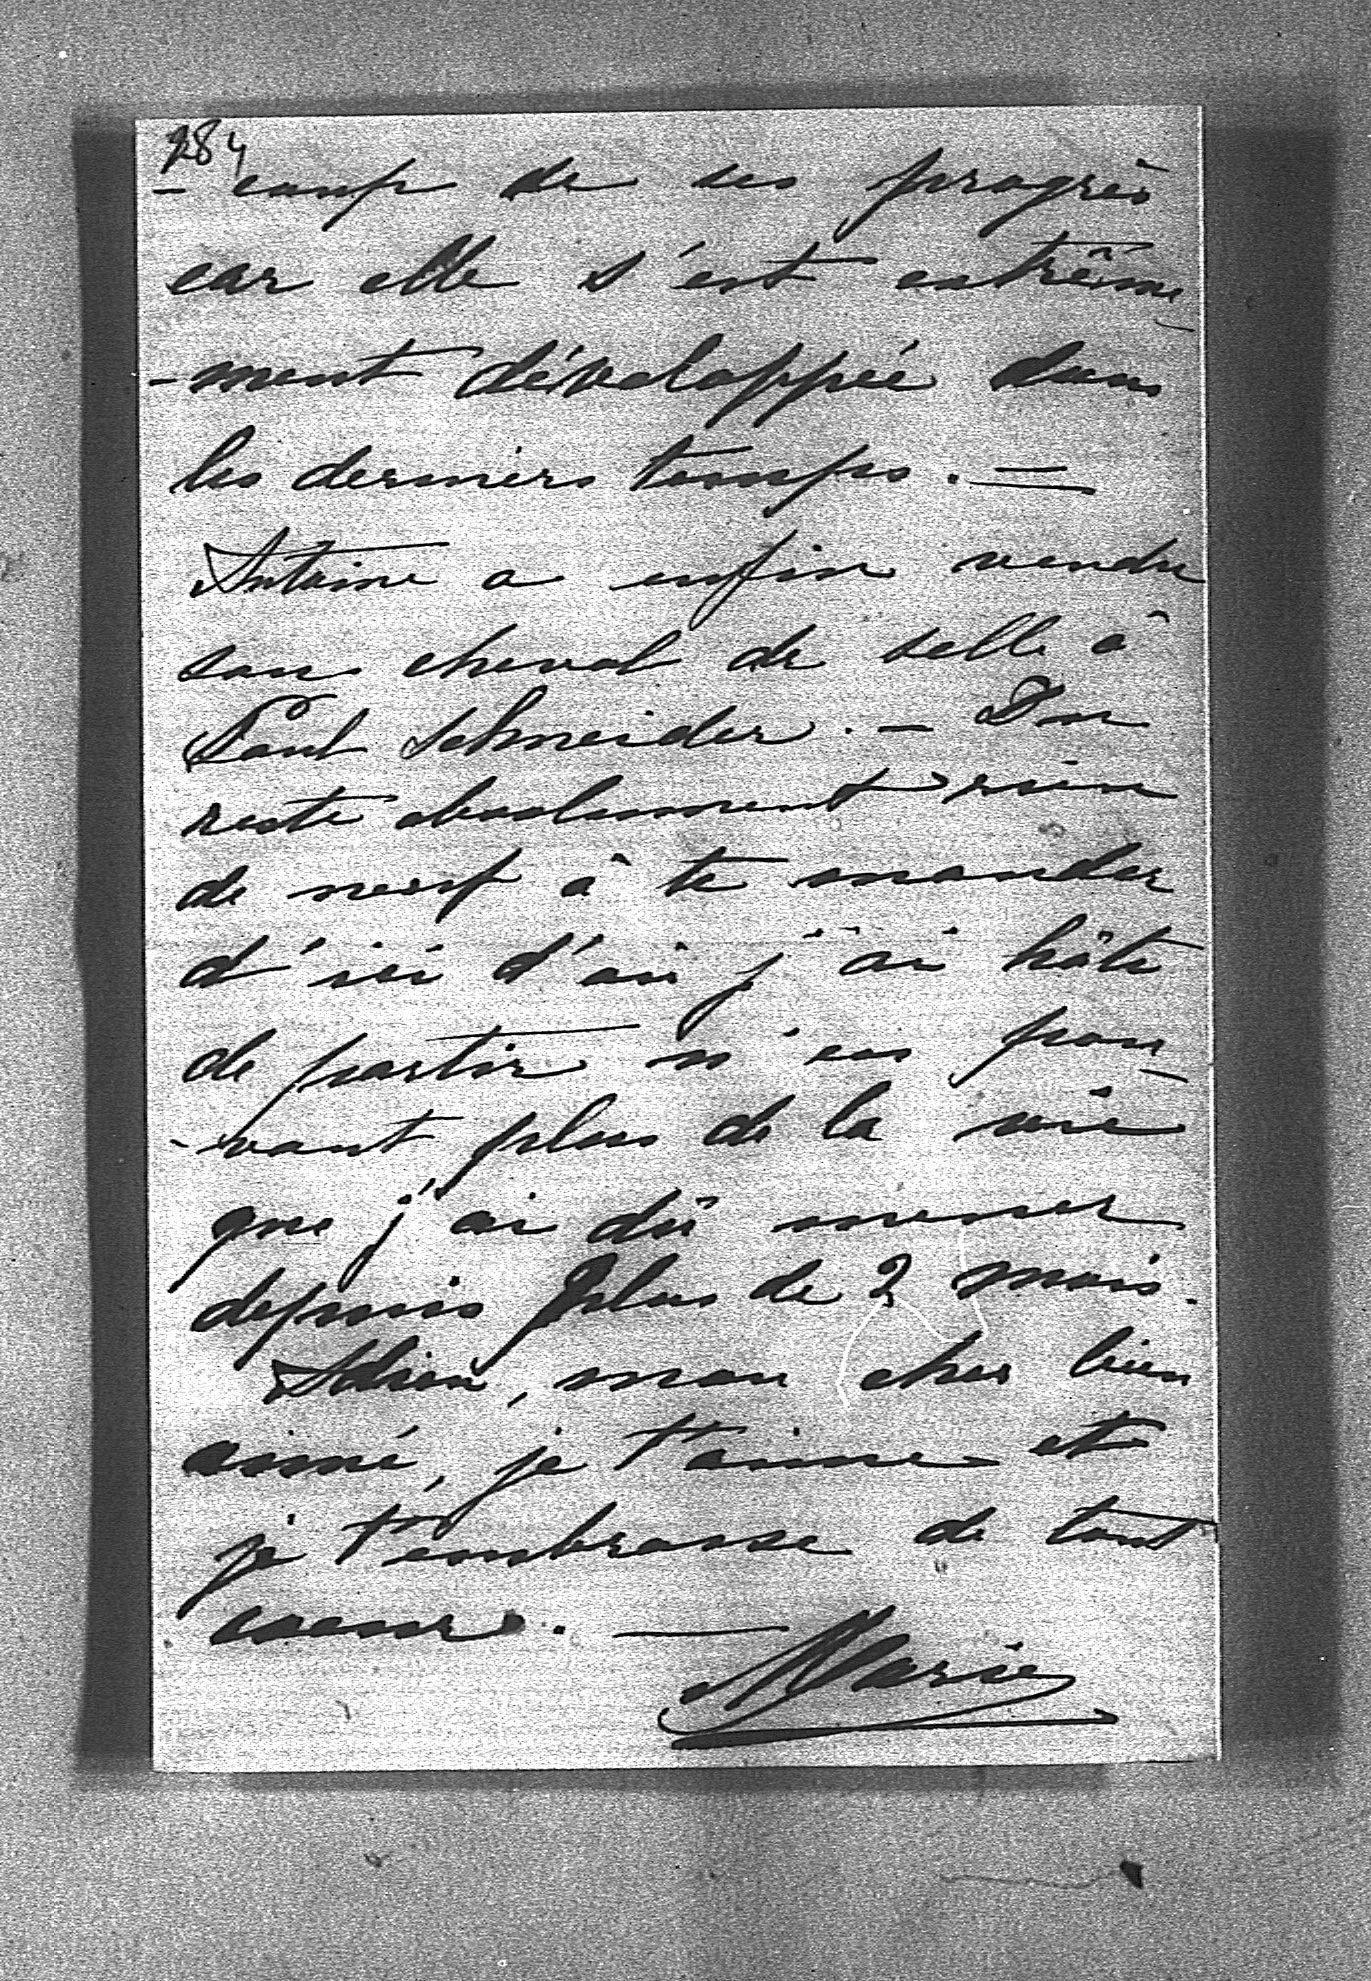 284
- coup de ses progrès
car elle s'est extrême
-ment développée dans
les derniers temps. —
Antoine a enfin vendu
son cheval de selle à
Paul Schneider. — Du
reste absolument rien
de neuf à te mander
d'ici d'où j'ai hâte
de partir n'en pou-
-vant plus de la vie
que j'ai dû mener
depuis plus de 2 mois.
Adieu, mon cher bien
aimé, je t'aime et
je t'embrasse de tout
coeur. —
Marie